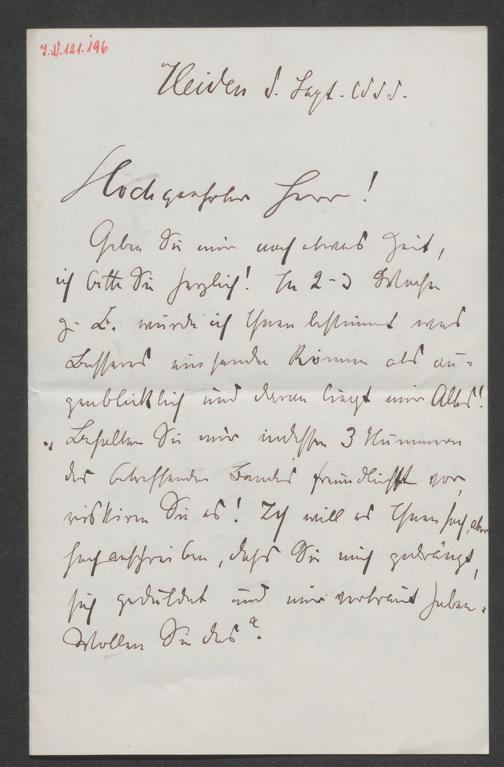 I.N. 121.196
Heiden 8. Sept. 1888.
Hochgeehrter Herr!
Geben Sie mir noch etwas Zeit,
ich bitte Sie herzlich! In 2-3 Wochen
z. B. würde ich Ihnen bestimmt was
Besseres einsenden können als au-
genblicklich und daran liegt mir Alles!
Behalten Sie mir indessen 3 Nummern
des betreffenden Bandes freundlichst vor,
riskiren Sie es! Ich will es Ihnen hoch, aber
hoch anschreiben, daß Sie mich gedrängt,
sich geduldet und mir vertraut haben.
Wollen Sie das?